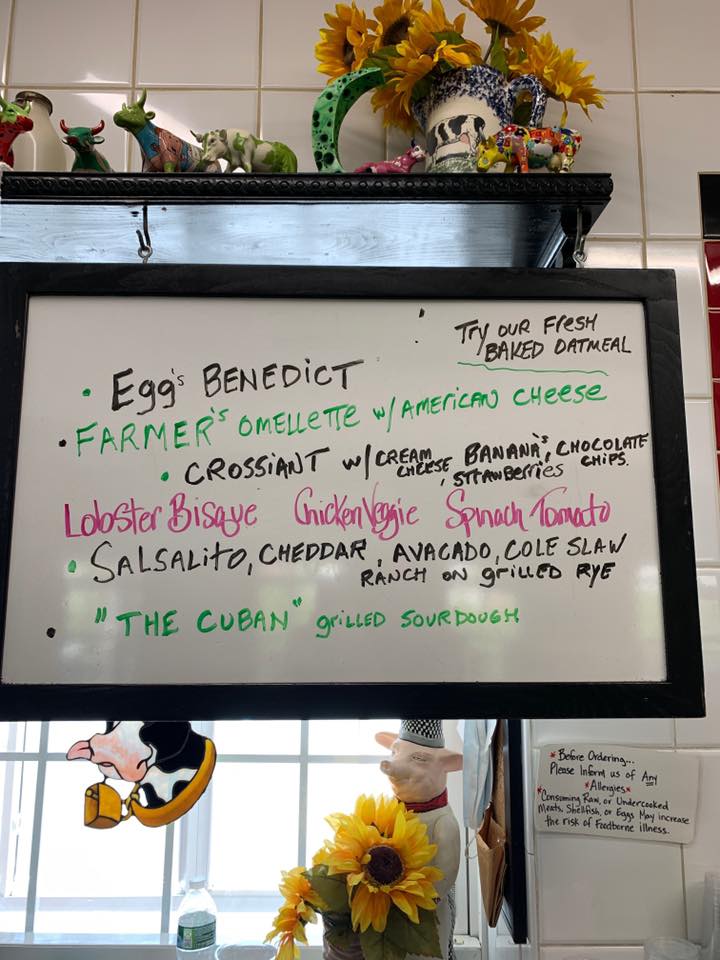 Try our Fresh
BAKED OATMEAL
• Egg's BENEDICT
• FARMER'S OMELLETTE w/ AMERICAN CHEESE
• CROSSIANT w/ CREAM CHEESE, BANANA'S, STRAWBERRIES CHOCOLATE CHIPS.
Lobster Bisque Chicken Veggie Spinach Tomato
• SALSALITO, CHEDDAR, AVACADO, COLE SLAW
RANCH ON grilled RYE
• "THE CUBAN" grilled SOURDOUGH
*Before Ordering...
Please Inform us of Any
*Allergies*
*Consuming Raw, or Undercooked
Meats, Shellfish, or Eggs May increase
the risk of Foodborne illness.